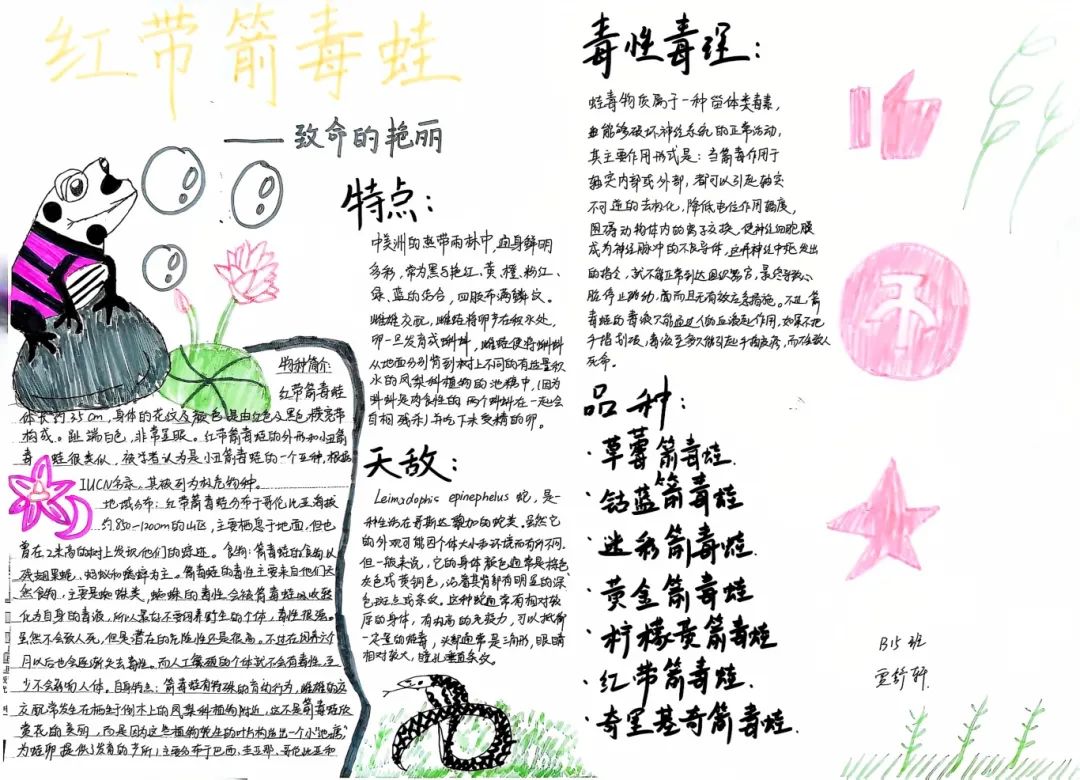 红带箭毒蛙
——致命的艳丽
物种简介:
红带箭毒蛙
体长约3.5cm,身体的花纹及颜色是由红色及黑色横完带
构成。趾端白色,非常显眼。红带箭毒蛙的外形和小丑箭
毒蛙很类似,被学者认为是小丑箭毒蛙的一个亚种,根据
IUCN名录,其被列为极危物种。
地域分布:红带箭毒蛙分布于哥伦比亚海拔
约850-1200m的山区,主要栖息于地面,但也
曾在2米高的树上发现他们的踪迹。食物:箭毒蛙的食物以
残翅果蝇、蚂蚁和蟋蟀为主。箭毒蛙的毒性主要来自他们天
然食物,主要是蜘蛛类,蜘蛛的毒性会被箭毒蛙吸收转
化为自身的毒液,所以最好不要饲养野生的个体,毒性很强。
虽然不会致人死,但是潜在的危险性还是很高。不过在饲养六个
月以后也会逐渐失去毒性。而人工繁殖的个体就不会有毒性,至
少不会影响人体。自身特点:箭毒蛙有特殊的育幼行为,雌雄的
交配常发生在栖生于倒木上的凤梨科植物附近,这不是箭毒蛙欣
赏花的美丽,而是因为这些植物轮生的叶片构造出一个小"池塘",
为蛙卵提供了发育的场所;主要分布于巴西、圭亚那、哥伦比亚和
特点:
中美洲的热带雨林中,通身鲜明
多彩,常为黑与艳红、黄、橙、粉红、
绿、蓝的结合,四肢布满鳞纹。
雌雄交配,雌蛙将卵产在积水处,
卵一旦发育成蝌蚪,雌蛙便将蝌蚪
从地面分别背到树上不同的有足量积
水的凤梨科植物的池穗中,(因为
蝌蚪是肉食性的 两个蝌蚪在一起会
自相残杀)并吃下未受精的卵。
天敌:
Leimadophis epinephelus 蛇,是一
种生活在哥斯达黎加的蛇类。虽然它
的外观可能因个体大小和环境而有所不同.
但一般来说,它的身体颜色通常是棕色
灰色或黄铜色,沿着其背部有明显的深
色斑点或条纹。这种蛇通常有相对较
厚的身体,有内部的免疫力,可以抵御
一定量的蛙毒,头部通常是三角形,眼睛
相对较大,瞳孔垂直条纹。
毒性毒理:
蛙毒物质属于一种甾体类毒素,
能够破坏神经系统的正常活动,
其主要作用形式是:当箭毒作用于
轴突内部或外部,都可以引起轴突
不可逆的去极化,降低电位作用幅度,
阻碍动物体内的离子交换,使神经细胞膜
成为神经脉冲的不良导体,这样神经中枢发出
的指令,就不能正常到达组织器官,最终导致心
脏停止跳动,而且无有效应急措施。不过,箭
毒蛙的毒液只能通过人的血液起作用,如果不把
手指划破,毒液至多只能引起手指皮疹,而不会致人
死命。
品种:
·草莓箭毒蛙.
·钴蓝箭毒蛙
·迷彩箭毒蛙.
·黄金箭毒蛙
·柠檬黄箭毒蛙
·红带箭毒蛙.
·奇里基奇箭毒蛙.
B15班